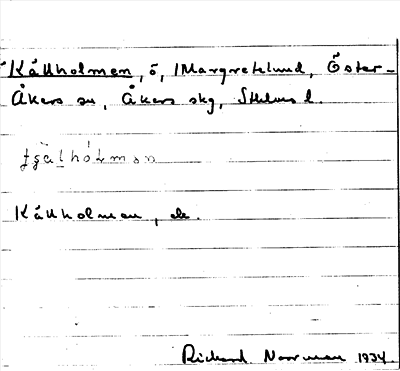 Källholmen, ö, Margretelund, Öster-
Åkers sn, Åkers skg, Sthlms l.
Källholmen, ds.
Rickard Norrman 1934.